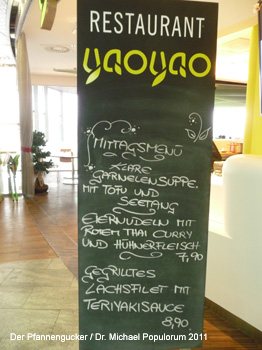 RESTAURANT
yaoyao
MITTAGSMENÜ
KLARE
GARNELENSUPPE.
MIT TOFU UND
SEETANG
EIERNUDELN MIT
ROTEM THAI CURRY
UND HÜHNERFLEISCH
7,90
GEGRILLTES
LACHSFILET MIT
TERIYAKISAUCE
8,90
Der Pfannengucker / Dr. Michael Populorum 2011